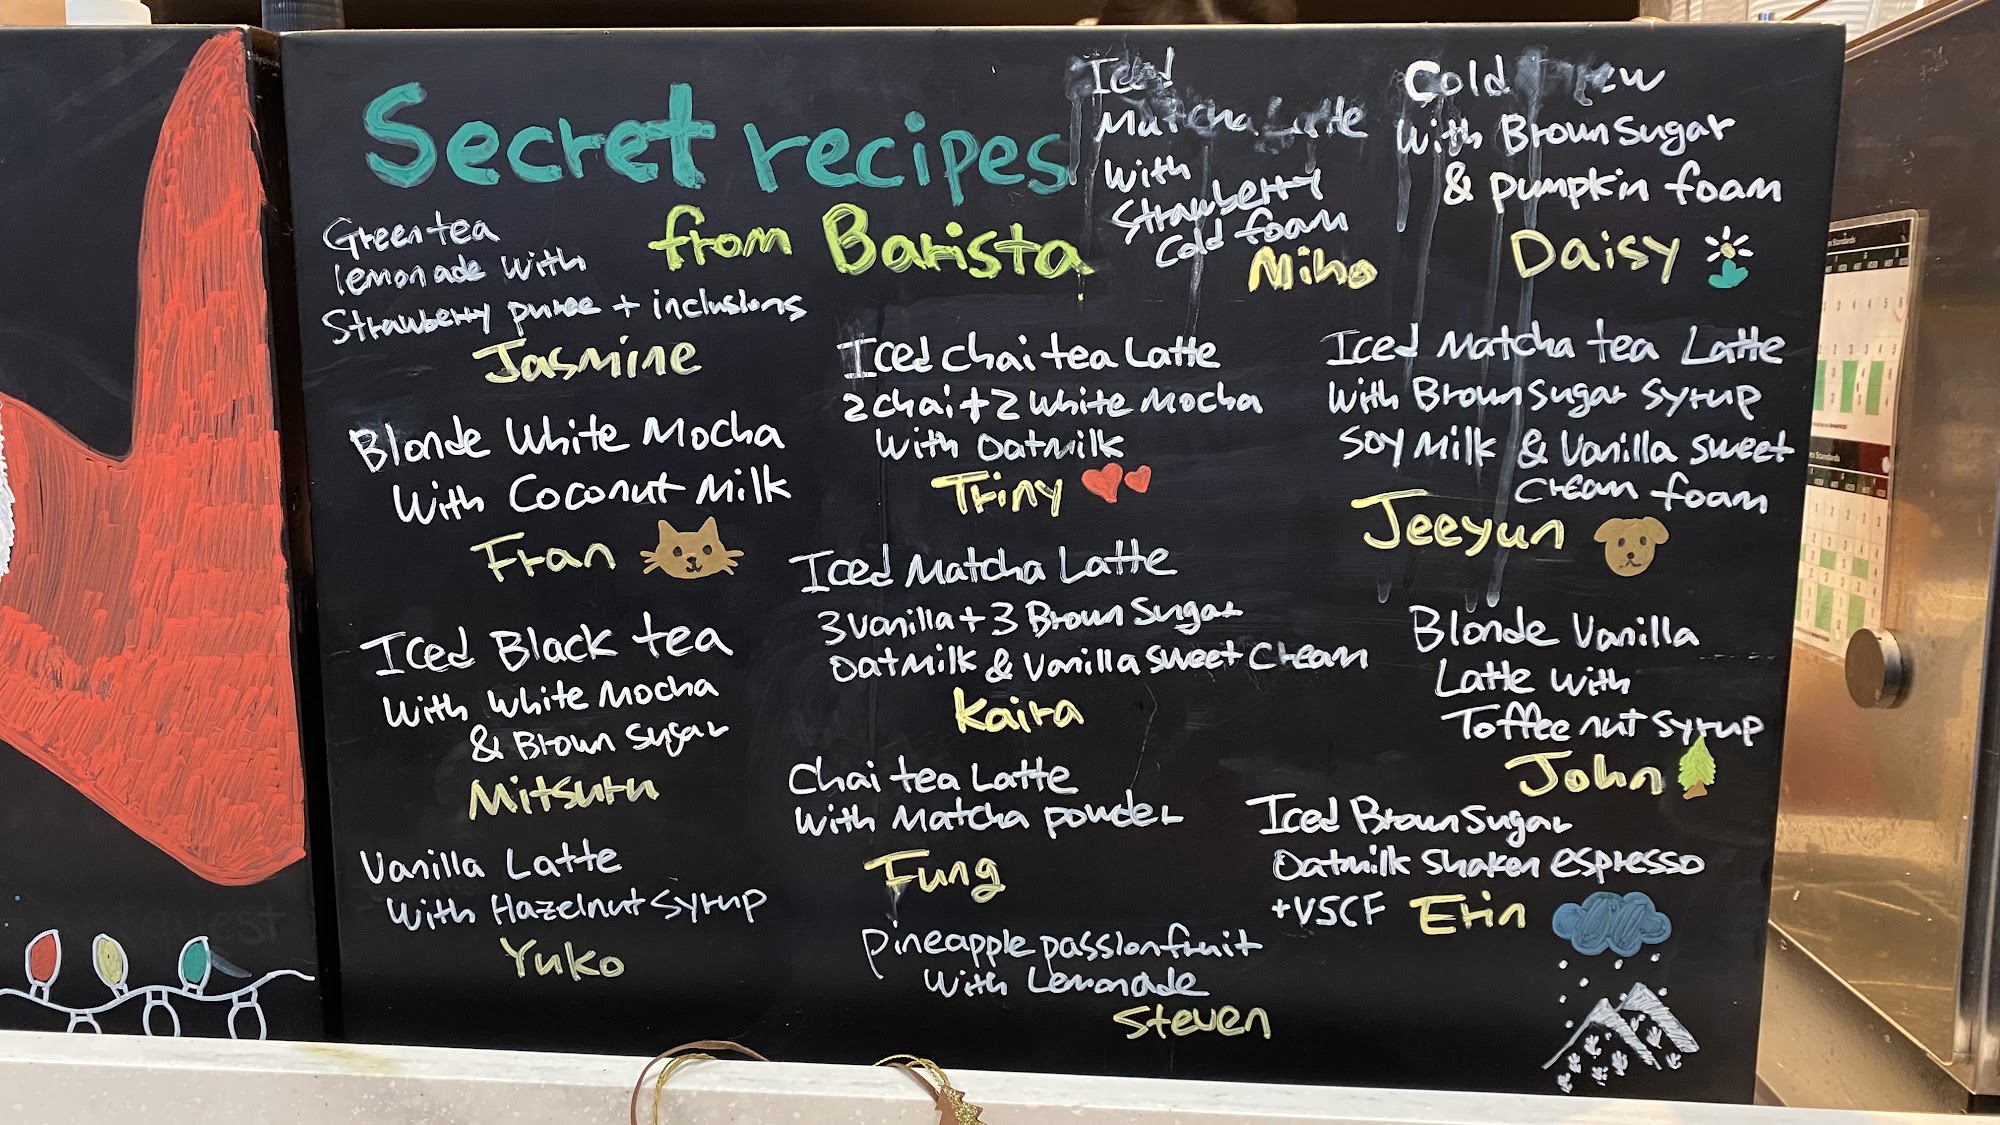 Secret recipes
from Barista
Green tea
lemonade with
Strawberry puree + inclusions
Jasmine
Blonde White Mocha
With Coconut Milk
Fran
Iced Black tea
With White Mocha
& Brown Sugar
Mitsuru
Vanilla Latte
With Hazelnut Syrup
Yuko
Iced
Matcha Latte
With
Strawberry
Cold foam
Miho
Iced chai tea Latte
2 chai + 2 White Mocha
With Oatmilk
Triny
Iced Matcha Latte
3 Vanilla + 3 Brown Sugar
Oatmilk & Vanilla Sweet Cream
Kaira
Chai tea Latte
With Matcha powder
Fung
Pineapple passionfruit
With Lemonade
Steven
Cold
With Brown Sugar
& pumpkin foam
Daisy
Iced Matcha tea Latte
With Brown Sugar Syrup
Soy Milk & Vanilla Sweet
Cream foam
Jeeyun
Blonde Vanilla
Latte With
Toffee nut Syrup
John
Iced Brown Sugar
Oatmilk Shaken espresso
+VSCF
Erin